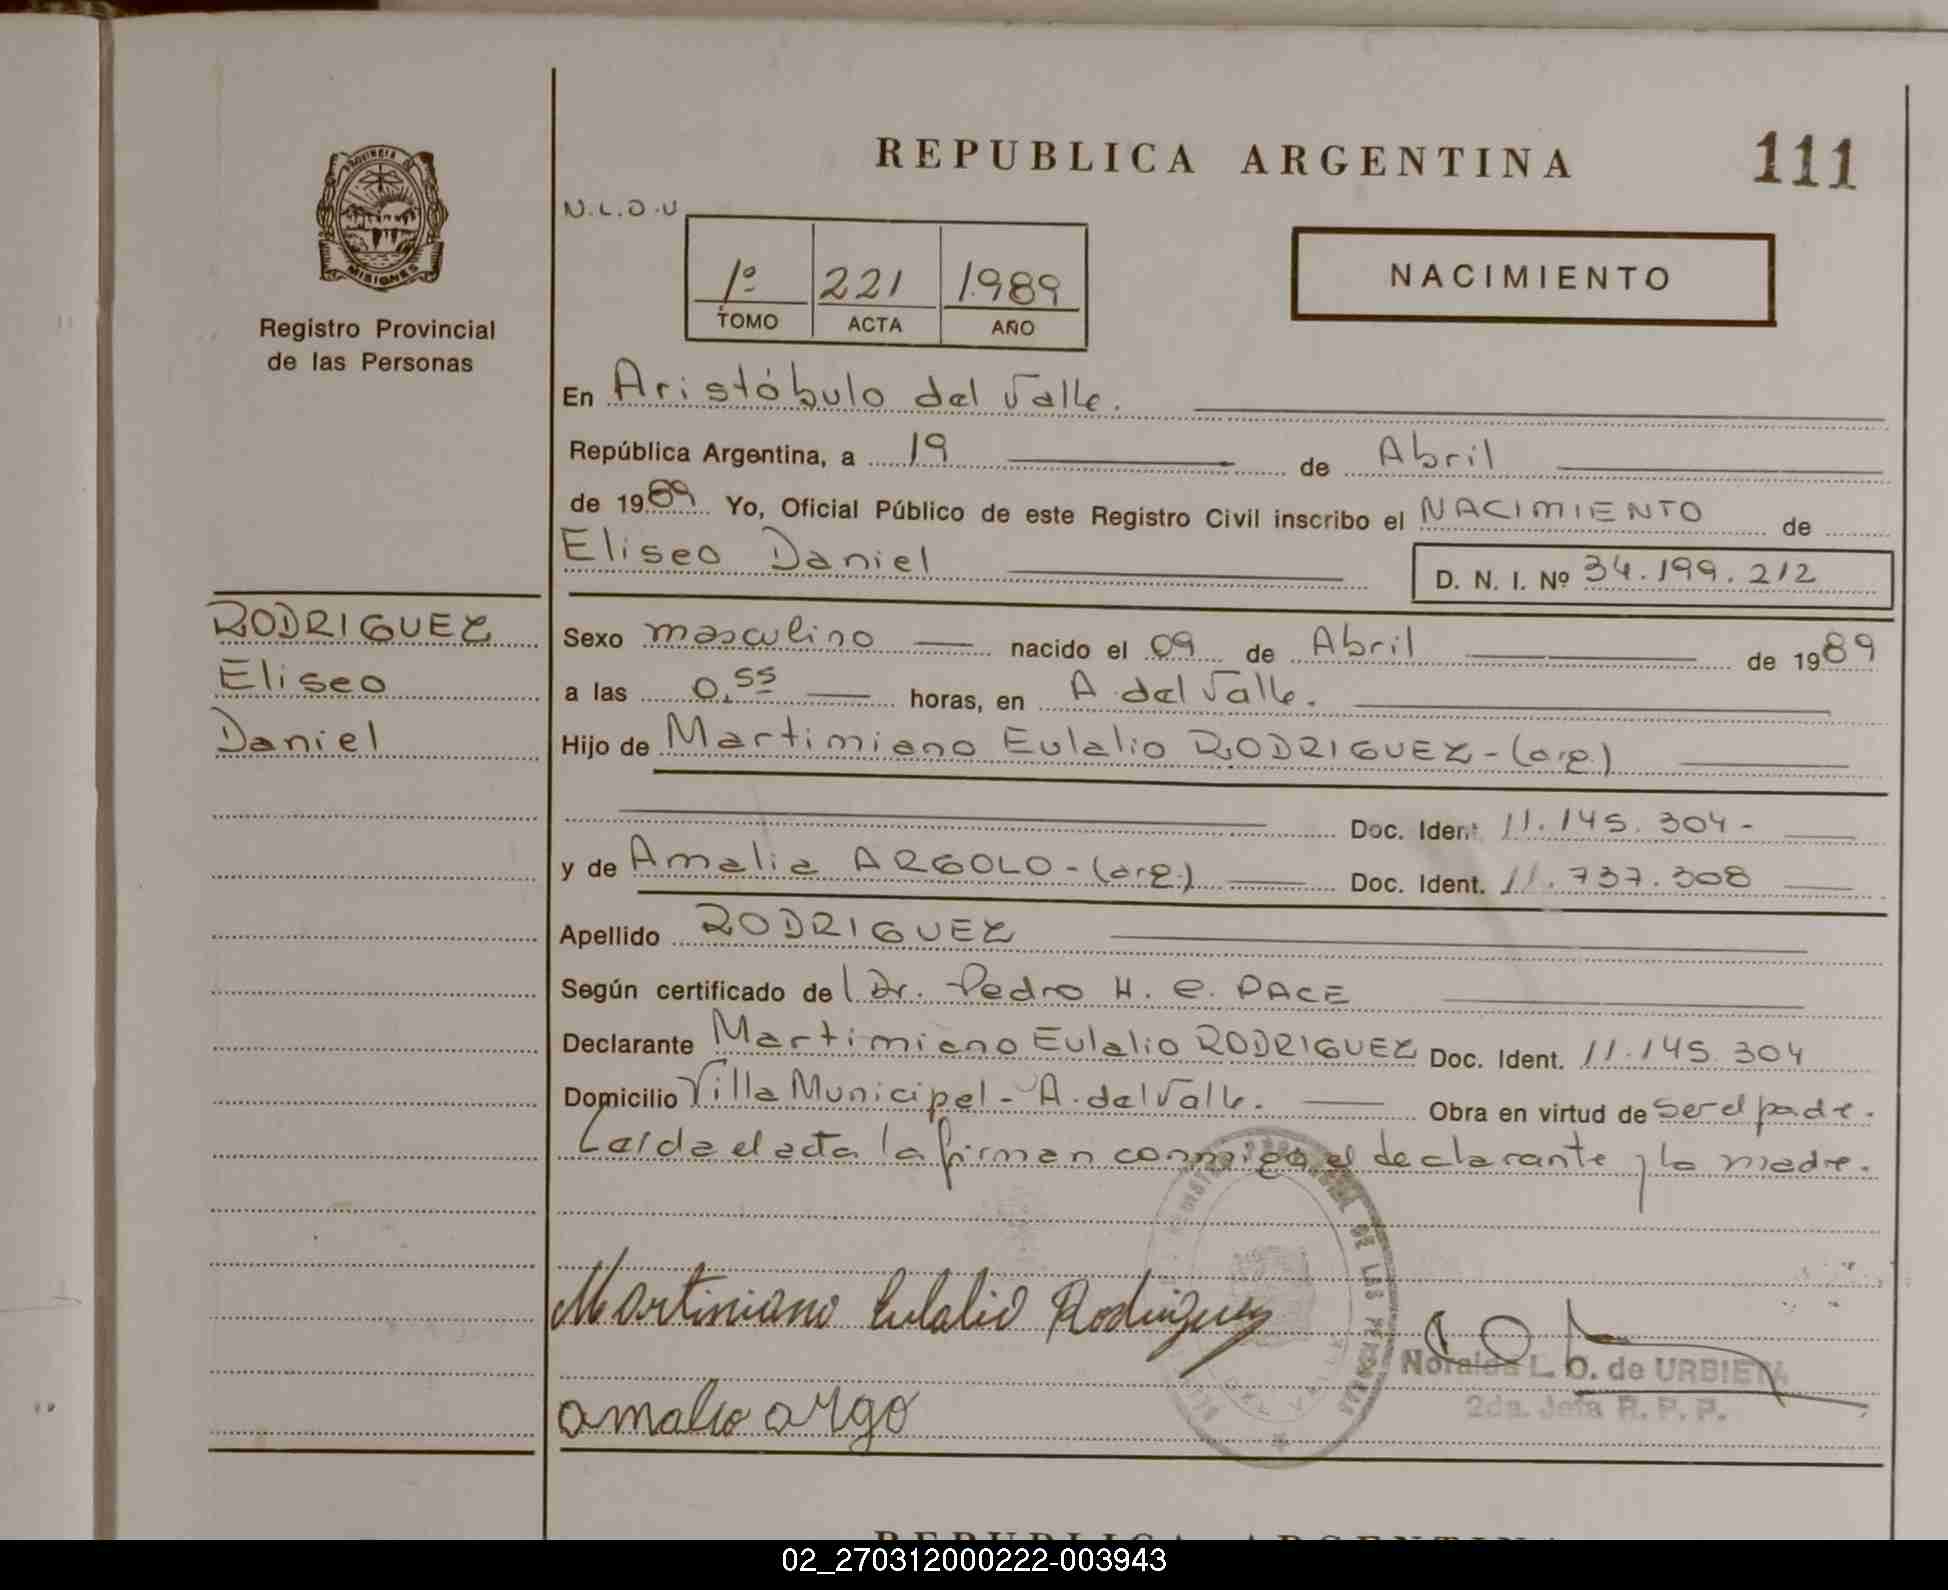 REPUBLICA ARGENTINA
111
PROVINCIA DE
MISIONES
Registro Provincial
de las Personas
N.L.O.U
1º 221 1989
TOMO ACTA AÑO
NACIMIENTO
En Aristóbulo del Valle.
República Argentina, a 19 de Abril
de 1989 Yo, Oficial Público de este Registro Civil inscribo el NACIMIENTO de
Eliseo Daniel D. N. I. Nº 34.199.212
RODRIGUEZ
Eliseo
Daniel
Sexo masculino nacido el 09 de Abril de 1989
a las 0,55 horas, en A. del Valle.
Hijo de Martimiano Eulalio RODRIGUEZ-(arg.)
Doc. Ident. 11.145.304-
y de Amalia ARGOLO-(arg.) Doc. Ident. 11.737.308
Apellido RODRIGUEZ
Según certificado del Dr. Pedro H. C. PACE
Declarante Martimiano Eulalio RODRIGUEZ Doc. Ident. 11.145.304
Domicilio Villa Municipal - A. del Valle. Obra en virtud de ser el padre.
Leída el acta la firman conmigo el declarante y la madre.
DE LAS PERSONAS
DEL VALLE
Martiniano Eulalio Rodriguez
L. O. de URBIETA
2da. Jefa R. P. P.
amalio argo
REPUBLICA ARGENTINA
02_270312000222-003943